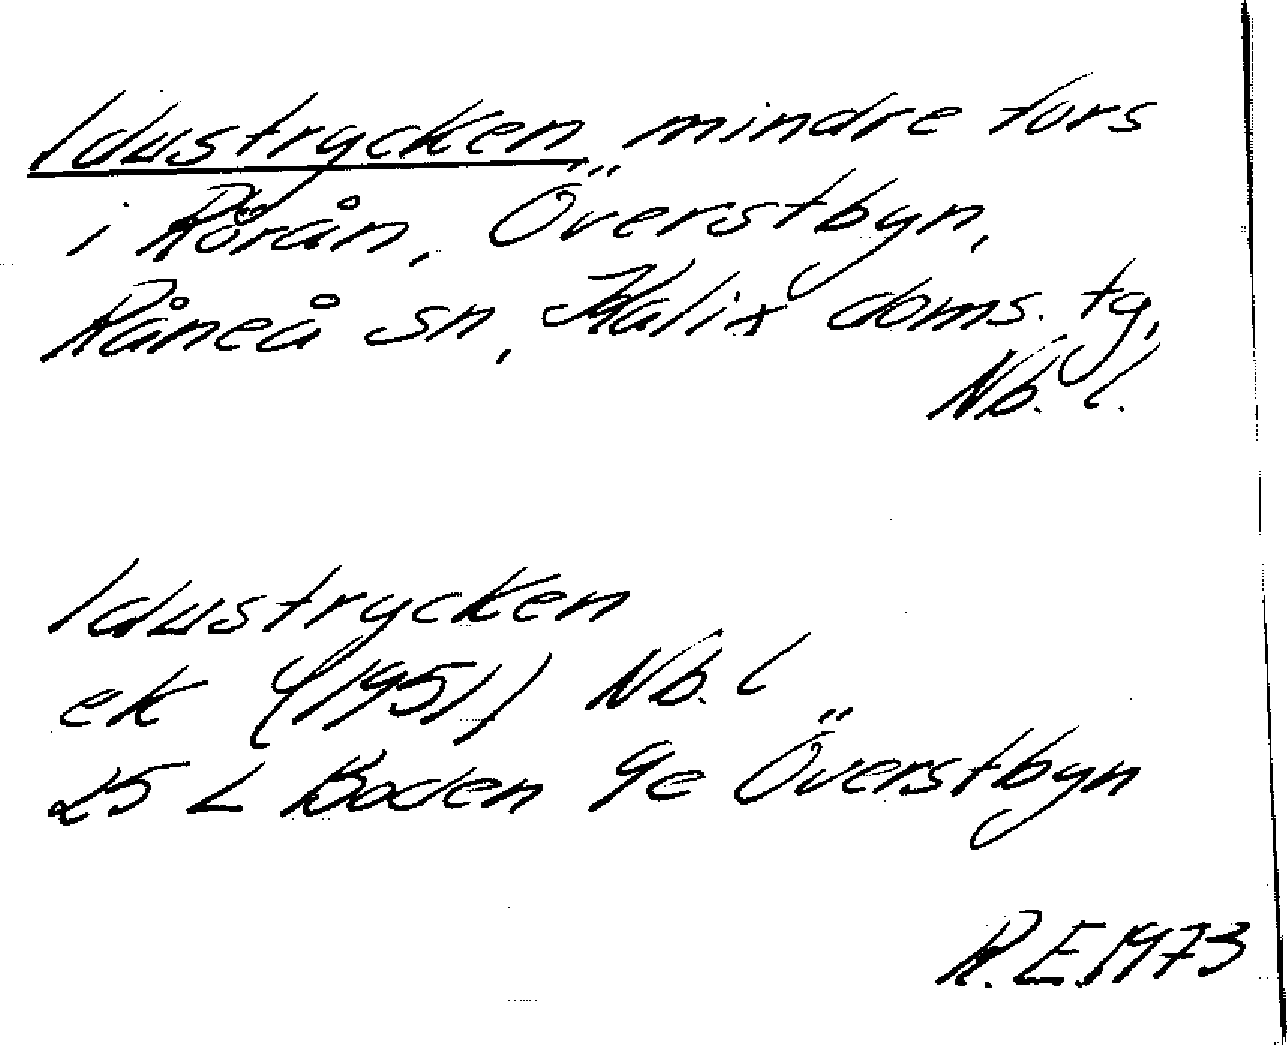 Idustrycken, mindre fors
i Rörån, Överstbyn,
Råneå sn, Kalix doms. tg,
Nb. l.
Idustrycken
ek (1951) Nb. l
25 L Boden 9e Överstbyn
R.E.1973